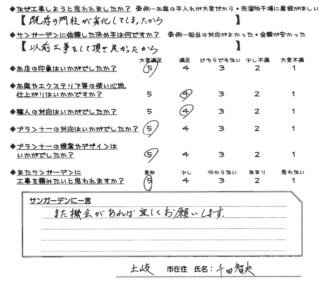 ◆なぜ工事しようと思われましたか？ 条例…お庭の手入れが大変だから・洗濯物干場に屋根がほしい
【 既存の門柱が劣化してしまったから 】
◆サンガーデンに依頼した決め手は何ですか？ 条例…担当の対応がよかった・金額が安かった
【 以前工事をして頂き良かったから 】
大変満足 満足 どちらでもない 少し不満 大変不満
◆お店の印象はいかがでしたか？ 5 4 3 2 1
◆お庭やエクステリア等の使い心地、
仕上がりはいかがですか？ 5 4 3 2 1
◆職人の対応はいかがでしたか？ 5 4 3 2 1
◆プランナーの対応はいかがでしたか？ 5 4 3 2 1
◆プランナーの提案やデザインは
いかがでしたか？ 5 4 3 2 1
◆またサンガーデンに
工事を頼みたいと思われますか？ 5 4 3 2 1
少し 分からない あまり 思わない
サンガーデンに一言
また機会があれば宜しくお願いします。
土岐 市在住 氏名：千田智史